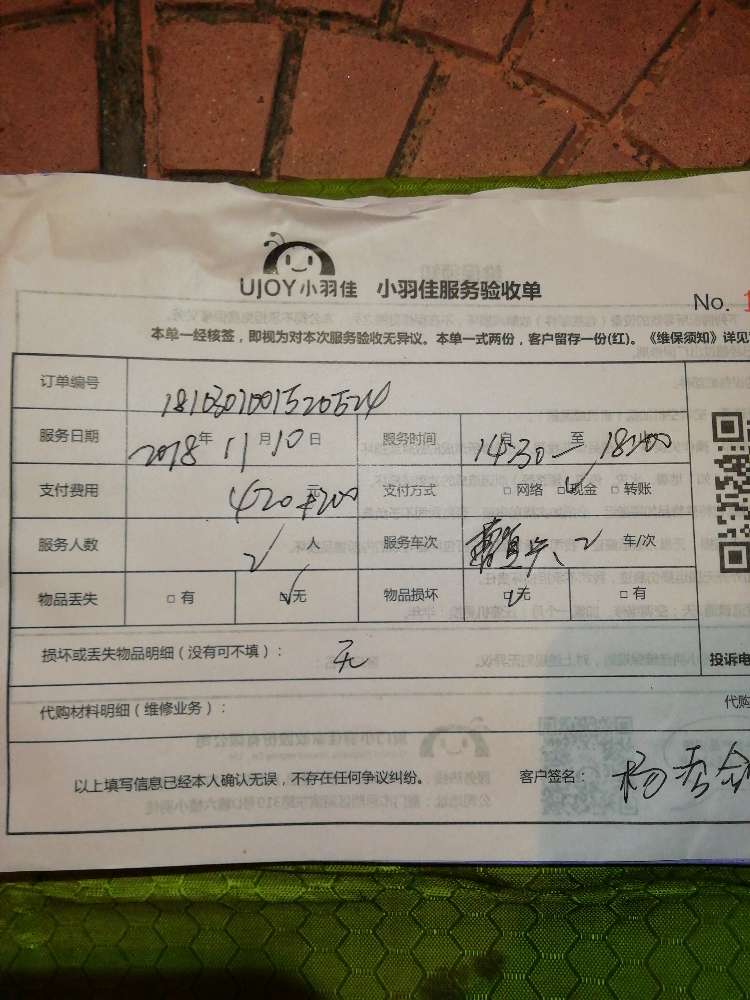 UJOY小羽佳 小羽佳服务验收单
No. 1
本单一经核签，即视为对本次服务验收无异议。本单一式两份，客户留存一份(红)。《维保须知》详见
订单编号 1810307001520524
服务日期 2018年11月10日 服务时间 14:30至18:00
支付费用 420+200元 支付方式 □网络 □现金 □转账
服务人数 2人 服务车次 2 车/次
物品丢失 □有 □无 物品损坏 □无 □有
损坏或丢失物品明细（没有可不填）： 无
投诉电
代购材料明细（维修业务）： 代购
以上填写信息已经本人确认无误，不存在任何争议纠纷。 客户签名： 杨